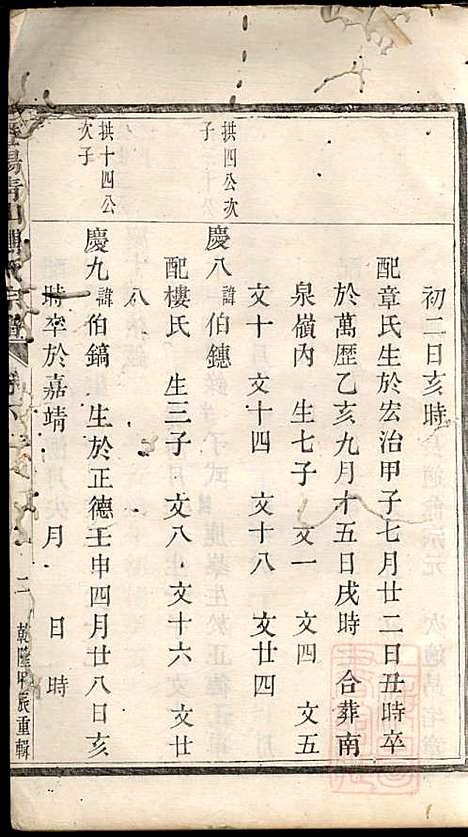 初二日亥時
配章氏生於宏治甲子七月廿二日丑時卒
於萬歷乙亥九月十五日戌時 合葬南
泉嶺內 生七子 文一 文四 文五
文十 文十四 文十八 文廿四
拱四公次子
慶八諱伯鏸
配樓氏 生三子 文八 文十六 文廿
八
拱十四公次子
慶九諱伯鎬 生於正德壬申四月廿八日亥
時卒於嘉靖 月 日 時
陽青山 氏宗譜 卷六 二 乾隆甲辰重輯